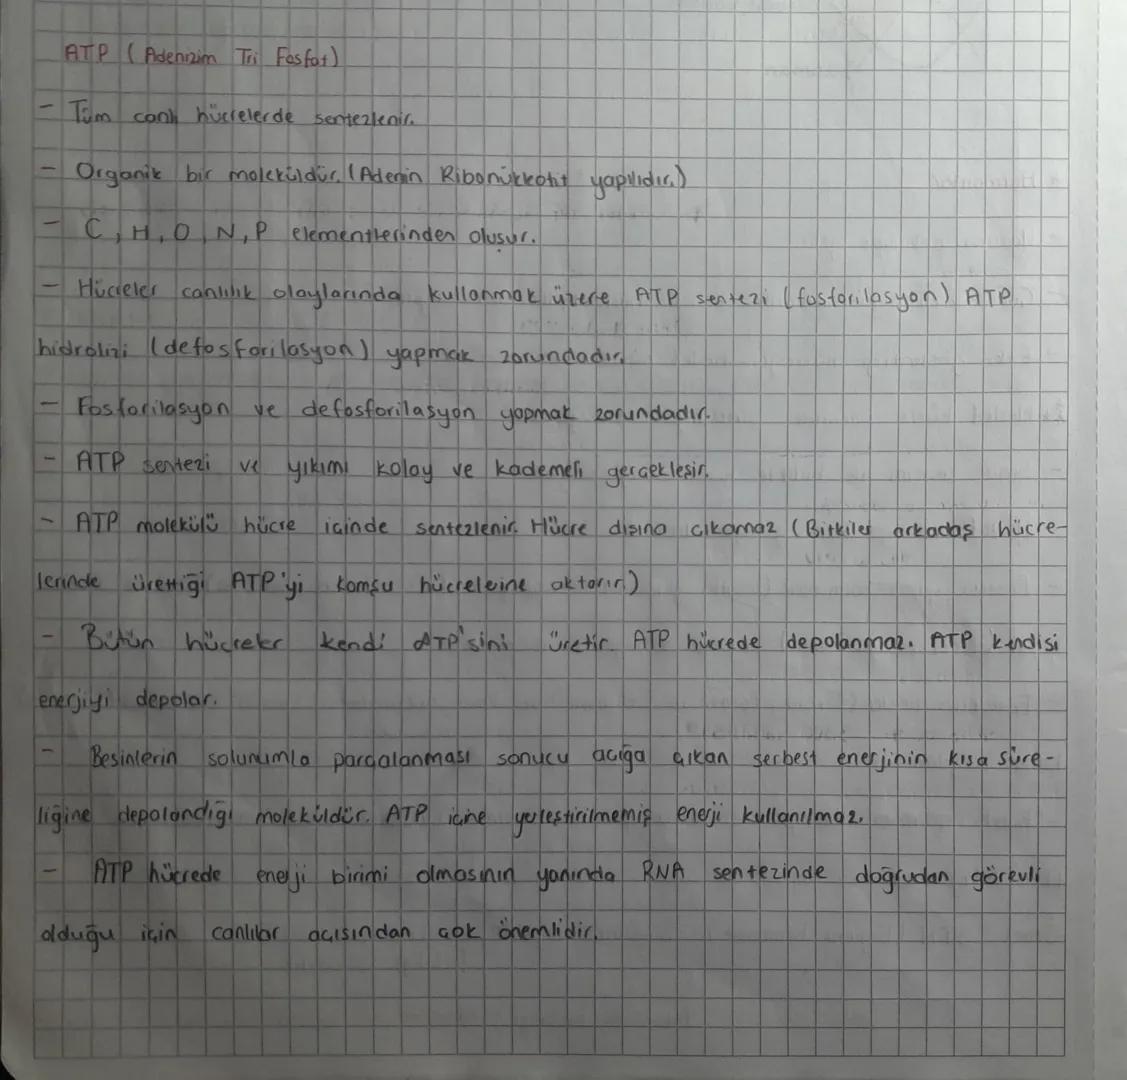 ATP ( Adenizim Tri Fosfat)
- Tüm canlı hücrelerde sentezlenir.
- Organik bir moleküldür. (Adenin Ribonükleotit yapılıdır.)
- C, H, O, N, P elementlerinden oluşur.
- Hücreler canlılık olaylarında kullanmak üzere ATP sentezi (fosforilasyon) ATP
hidrolizi (defosforilasyon) yapmak zorundadır.
- Fosforilasyon ve defosforilasyon yapmak zorundadır.
- ATP sentezi ve yıkımı kolay ve kademeli gerçekleşir.
- ATP molekülü hücre içinde sentezlenir. Hücre dışına çıkamaz (Bitkiler arkadaş hücre-
lerinde ürettiği ATP'yi komşu hücreleine aktarır.)
- Bütün hücreler kendi ATP'sini üretir. ATP hücrede depolanmaz. ATP kendisi
enerjiyi depolar.
- Besinlerin solunumla parçalanması sonucu açığa çıkan serbest enerjinin kısa süre-
liğine depolandığı moleküldür. ATP içine yerleştirilmemiş enerji kullanılmaz.
- ATP hücrede enerji birimi olmasının yanında RNA sentezinde doğrudan görevli
olduğu için canlılar açısından çok önemlidir.